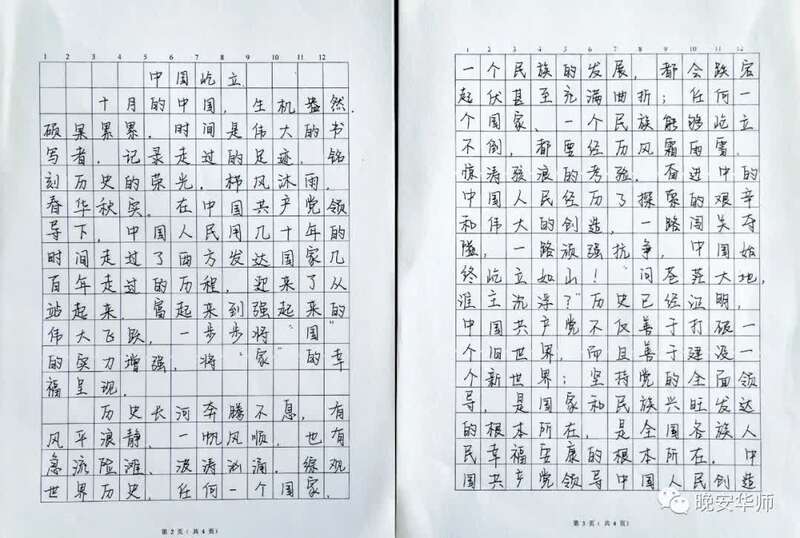 1 2 3 4 5 6 7 8 9 10 11 12
中国屹立
十月的中国，生机盎然，
硕果累累。时间是伟大的书
写者，记录走过的足迹，铭
刻历史的荣光。栉风沐雨，
春华秋实。在中国共产党领
导下，中国人民用几十年的
时间走过了西方发达国家几
百年走过的历程，迎来了从
站起来、富起来到强起来的
伟大飞跃，一步步将“国”
的实力增强，将“家”的幸
福呈现。
历史长河奔腾不息，有
风平浪静、一帆风顺，也有
急流险滩、波涛汹涌。综观
世界历史，任何一个国家、
第2页（共4页）
1 2 3 4 5 6 7 8 9 10 11 12
一个民族的发展，都会跌宕
起伏甚至充满曲折；任何一
个国家、一个民族能够屹立
不倒，都要经历风霜雨雪、
惊涛骇浪的考验。奋进中的
中国人民经历了探索的艰辛
和伟大的创造，一路闯关夺
隘，一路顽强抗争，中国始
终屹立如山！“问苍茫大地，
谁主沉浮？”历史已经证明，
中国共产党不仅善于打破一
个旧世界，而且善于建设一
个新世界；坚持党的全面领
导，是国家和民族兴旺发达
的根本所在，是全国各族人
民幸福安康的根本所在。中
国共产党领导中国人民创造
第3页（共4页）
晚安华师